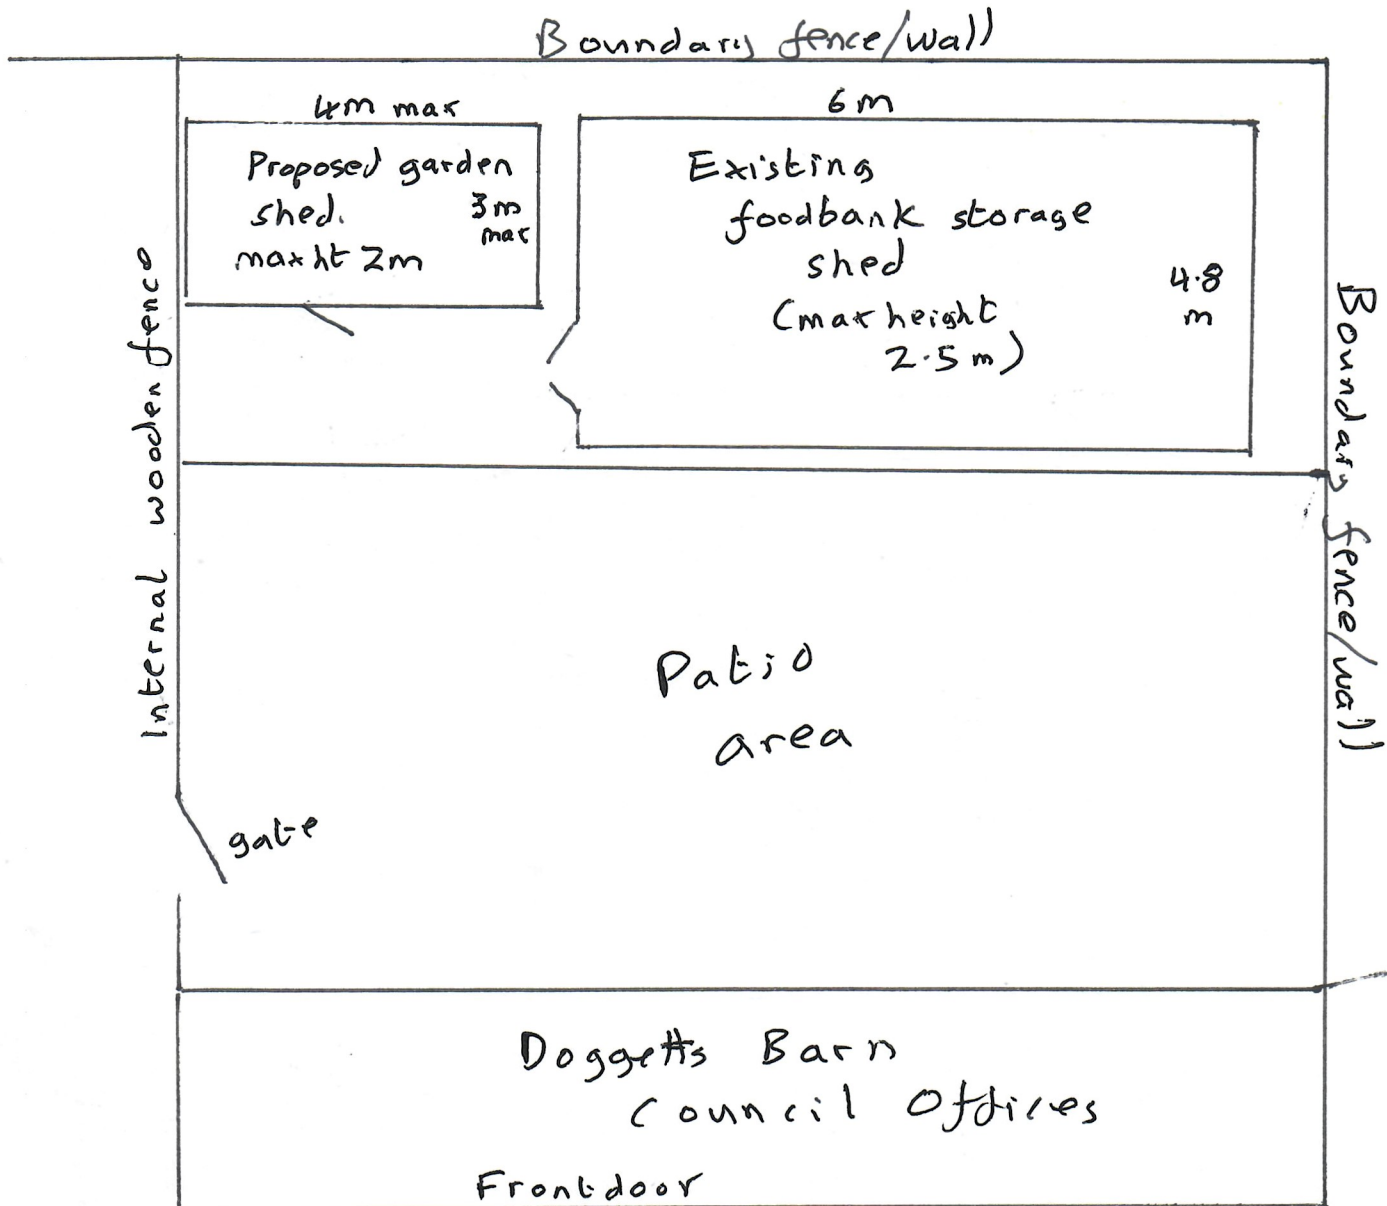 Boundary fence/wall
4m max
6m
Proposed garden
shed.
3m
max
max ht 2m
Existing
foodbank storage
shed
(max height
2.5m)
4.8
m
Internal wooden fence
Boundary fence/wall
Patio
area
gate
Doggetts Barn
Council Offices
Frontdoor